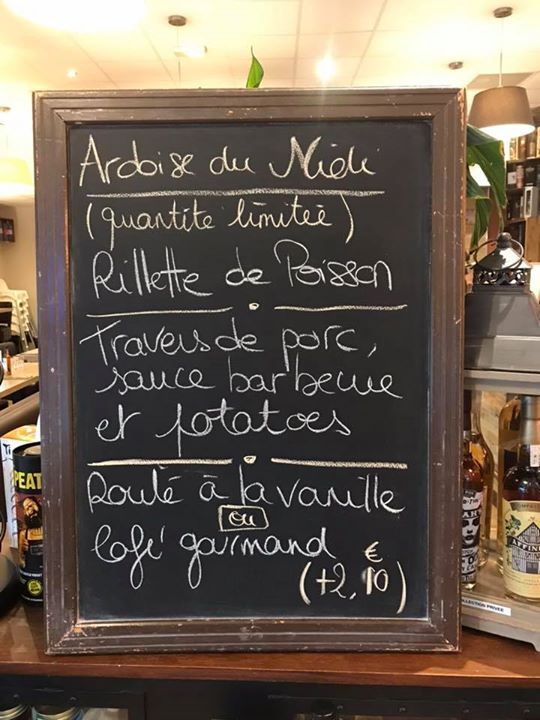 Ardoise du Midi
(quantité limitée)
Rillette de Poisson
Travers de porc,
sauce barbecue
et potatoes
Roulé à la vanille
ou
Café gourmand
(+2,10€)
PEAT
COLLECTION PRIVEE